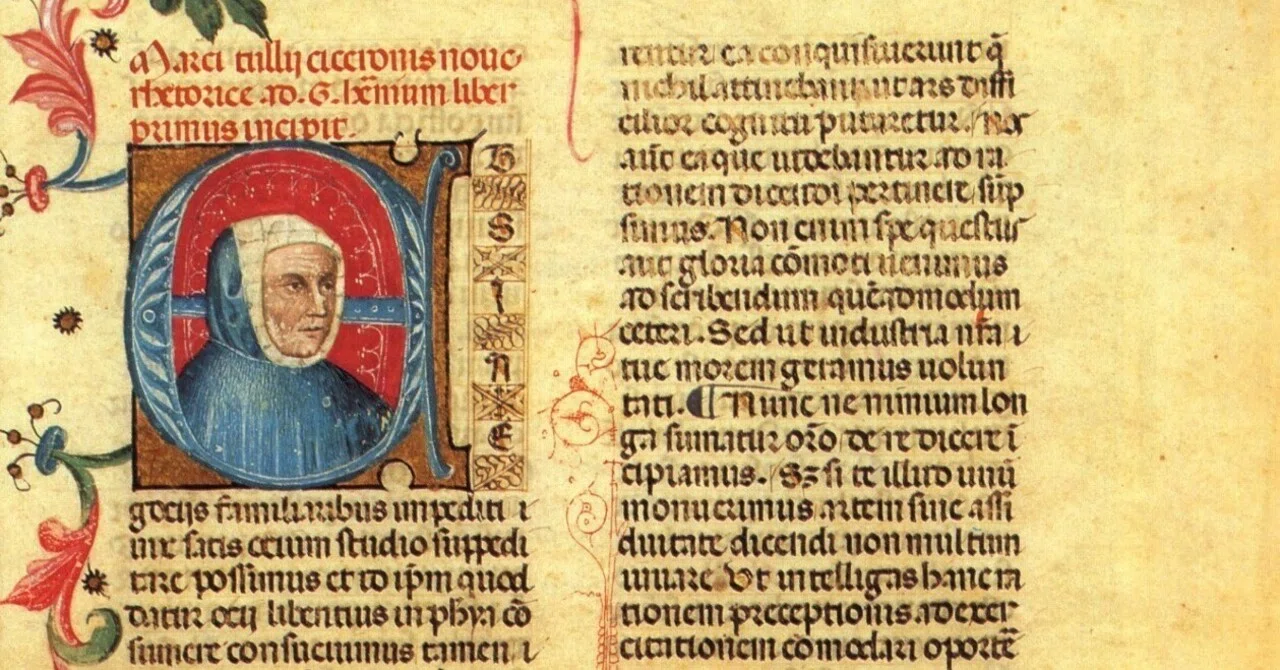 Marci tullij ciceronis noue
rhetorice ad. G. hēnium liber
primus incipit.
E
T
S
I
N
E
gocijs familiaribus impediti i
uix satis ocium studio suppedi
tare possimus et id ip̄m quod
datur ocij libentius in phỹa cō
sumere consueuimus tamen i
rentur ea conquisiuerunt q̄
nichil attinebant ut ars diffi
cilior cognitu putaretur. Nos
aūt ea que uidebantur ad ra
tionem dicendi pertinere sūp
simus. Non enim spe questus
aut gloria cōmoti uenimus
ad scribendum quēadmodum
ceteri. Sed ut industria nr̄a i
tue morem geramus uolun
tati. ¶ Nunc ne nimium lon
ga sumatur or̄o de re dicere ī
cipiamus. Sꝫ si te illud unū
monuerimus artem sine assi
duitate dicendi non multum
iuuare Vt intelligas hanc ra
tionem preceptionis ad exer
citationem cōmodari oportē